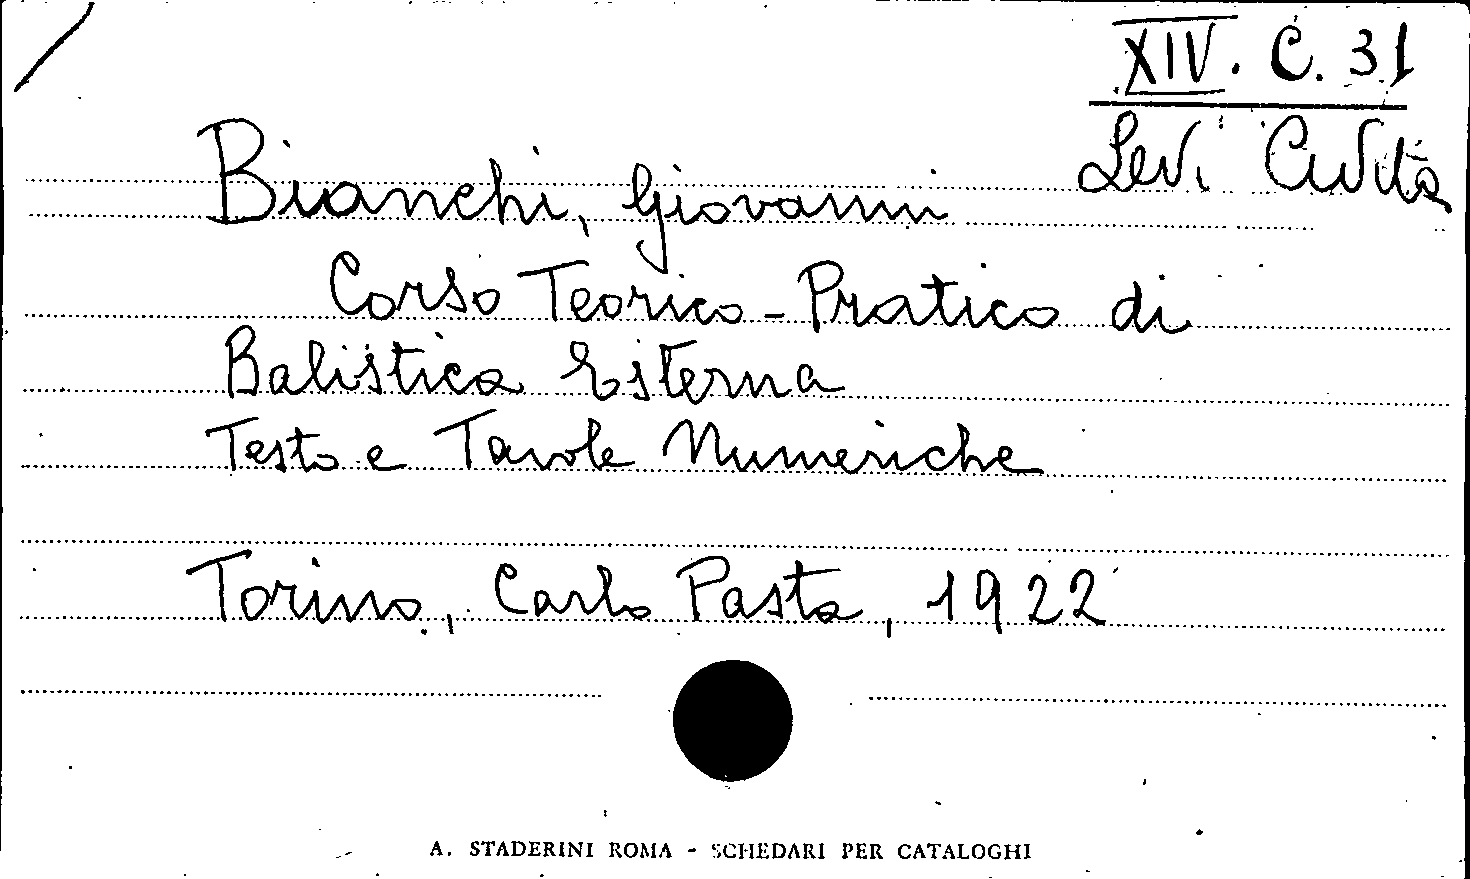 XIV. C. 31
Levi Civita
Bianchi, Giovanni
Corso Teorico-Pratico di
Balistica Esterna
Testo e Tavole Numeriche
Torino, Carlo Pasta, 1922
A. STADERINI ROMA - SCHEDARI PER CATALOGHI